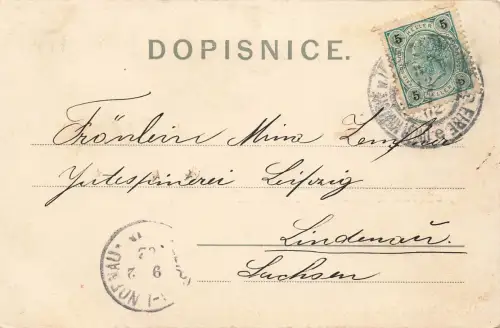 DOPISNICE.
5 5
5 5
Fräulein Mina
Jutespinerei Leipzig
Lindenau.
Sachsen